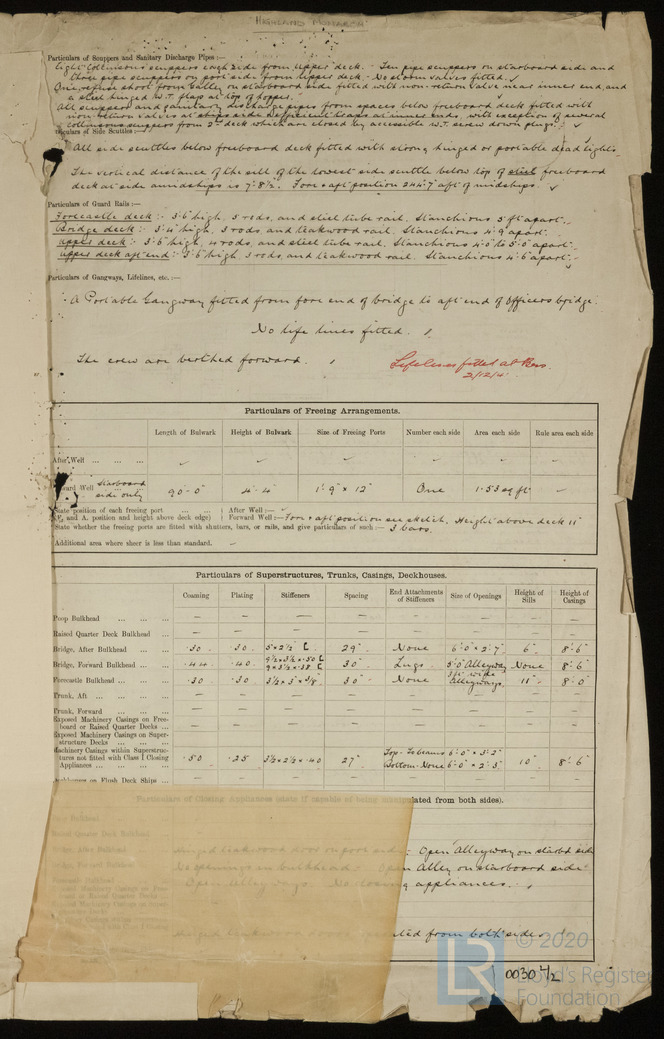 HIGHLAND MONARCH
Particulars of Scuppers and Sanitary Discharge Pipes :—
Eight Collinsons scuppers each side from upper deck. - Ten pipe scuppers on starboard side and
three pipe scuppers on port side from upper deck - No storm valves fitted. ✓
One refuse shoot from Galley on starboard side fitted with non-return valve near inner end, and
a steel hinged W.T. flap at top of hopper. ✓
All scuppers and sanitary discharge pipes from spaces below freeboard deck fitted with
non-return valves at ships side & efficient traps at inner ends, with exception of several
Collinsons scuppers from 2nd deck which are closed by accessible W.T. screw down plugs. ✓
Particulars of Side Scuttles :—
All side scuttles below freeboard deck fitted with strong hinged or portable deadlights.
The vertical distance of the sill of the lowest side scuttle below top of steel freeboard
deck at side amidships is 7'-8½". Fore & aft position 244'-7" aft of midships. ✓
Particulars of Guard Rails :—
Forecastle deck :- 3'-6" high, 3 rods, and steel tube rail. Stanchions 5 ft apart.
Bridge deck :- 3'-4" high, 3 rods, and teakwood rail. Stanchions 4'-9" apart.
upper deck :- 3'-6" high, 4 rods, and steel tube rail. Stanchions 4'-0" to 5'-0" apart.
upper deck aft end :- 3'-6" high, 3 rods, and teakwood rail. Stanchions 4'-6" apart.
Particulars of Gangways, Lifelines, etc. :—
A Portable Gangway fitted from fore end of bridge to aft end of Officers bridge.
No life lines fitted.
The crew are berthed forward.
Lifelines fitted at
2/12/41
Particulars of Freeing Arrangements.
Length of Bulwark Height of Bulwark Size of Freeing Ports Number each side Area each side Rule area each side
After Well ... ... ... ✓ ✓ — — — —
Well Starboard side only 90'-0" 4'-4" 1'-9" x 12" One 1.53 sq ft ✓
State position of each freeing port ... ... ... } After Well :— ✓
(F. and A. position and height above deck edge) } Forward Well :— Fore & aft position see sketch. Height above deck 11"
State whether the freeing ports are fitted with shutters, bars, or rails, and give particulars of such :— 3 bars.
Additional area where sheer is less than standard. —
Particulars of Superstructures, Trunks, Casings, Deckhouses.
Coaming Plating Stiffeners Spacing End Attachments of Stiffeners Size of Openings Height of Sills Height of Casings
Poop Bulkhead ... ... ... — — — — — — — —
Raised Quarter Deck Bulkhead ... — — — — — — — —
Bridge, After Bulkhead ... ... .30 .30 5" x 2½" L 29" None 6'-0" x 2'-7" 6" 8'-6"
Bridge, Forward Bulkhead ... ... .44 .40 9½ x 3½ x .50 L 9 x 3½ x .38 L 30" Lugs 5'-0" Alleyway None 8'-6"
Forecastle Bulkhead ... ... .30 .30 3½ x 3 x 3/8 30" None 3 ft wide Alleyways 11" 8'-0"
Trunk, Aft ... ... ... — — — — — — — —
Trunk, Forward ... ... ... — — — — — — — —
Exposed Machinery Casings on Freeboard or Raised Quarter Decks ... — — — — — — — —
Exposed Machinery Casings on Superstructure Decks ... ... — — — — — — — —
Machinery Casings within Superstructures not fitted with Class I Closing Appliances ... ... ... .50 .25 3½ x 2½ x .40 27" Top - To beams Bottom - None 6'-0" x 3'-2" 6'-0" x 2'-5" 10" 8'-6"
Deckhouses on Flush Deck Ships ... — — — — — — — —
Particulars of Closing Appliances (state if capable of being manipulated from both sides).
Poop Bulkhead
Raised Quarter Deck Bulkhead
Bridge, After Bulkhead Hinged teakwood door on port side - Open Alleyway on starbd side
Bridge, Forward Bulkhead No openings in bulkhead - Open Alley on starboard side
Forecastle Bulkhead Open Alleyways. No closing appliances.
Hinged teakwood doors manipulated from both sides
© 2020
LR Lloyd's Register
Foundation
0030 1/2